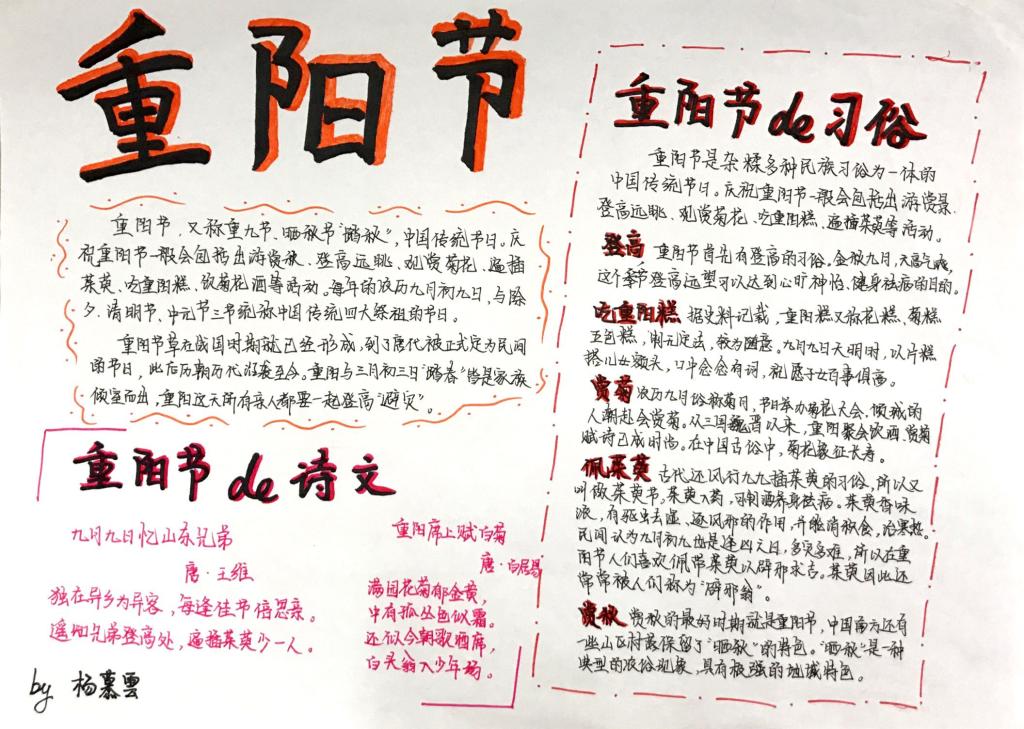 重阳节
重阳节，又称重九节、晒秋节"踏秋"，中国传统节日。庆
祝重阳节一般会包括出游赏秋、登高远眺、观赏菊花、遍插
茱萸、吃重阳糕、饮菊花酒等活动。每年的农历九月初九日，与除
夕、清明节、中元节三节统称中国传统四大祭祖的节日。
重阳节早在战国时期就已经形成，到了唐代被正式定为民间
的节日，此后历朝历代沿袭至今。重阳与三月初三日"踏春"皆是家族
倾室而出，重阳这天所有亲人都要一起登高"避灾"。
重阳节de诗文
九月九日忆山东兄弟
唐·王维
独在异乡为异客，每逢佳节倍思亲。
遥知兄弟登高处，遍插茱萸少一人。
重阳席上赋白菊
唐·白居易
满园花菊郁金黄，
中有孤丛色似霜。
还似今朝歌酒席，
白头翁入少年场。
by 杨慕雲
重阳节de习俗
重阳节是杂糅多种民族习俗为一体的
中国传统节日。庆祝重阳节一般会包括出游赏景、
登高远眺、观赏菊花、吃重阳糕、遍插茱萸等活动。
登高 重阳节首先有登高的习俗，金秋九月，天高气爽，
这个季节登高远望可以达到心旷神怡、健身祛病的目的。
吃重阳糕 据史料记载，重阳糕又称花糕、菊糕
五色糕，制无定法，较为随意。九月九日天明时，以片糕
搭儿女额头，口中念念有词，祝愿子女百事俱高。
赏菊 农历九月俗称菊月，节日举办菊花大会，倾城的
人潮赴会赏菊。从三国魏晋以来，重阳聚会饮酒、赏菊
赋诗已成时尚。在中国古俗中，菊花象征长寿。
佩茱萸 古代还风行九九插茱萸的习俗，所以又
叫做茱萸节。茱萸入药，可制酒养身祛病。茱萸香味
浓，有驱虫去湿、逐风邪的作用，并能消积食，治寒热。
民间认为九月初九也是逢凶之日，多灾多难，所以在重
阳节人们喜欢佩带茱萸以辟邪求吉。茱萸因此还
常常被人们称为"辟邪翁"。
赏秋 赏秋的最好时期就是重阳节，中国南方还有
一些山区村落保留了"晒秋"的特色。"晒秋"是一种
典型的农俗现象，具有极强的地域特色。